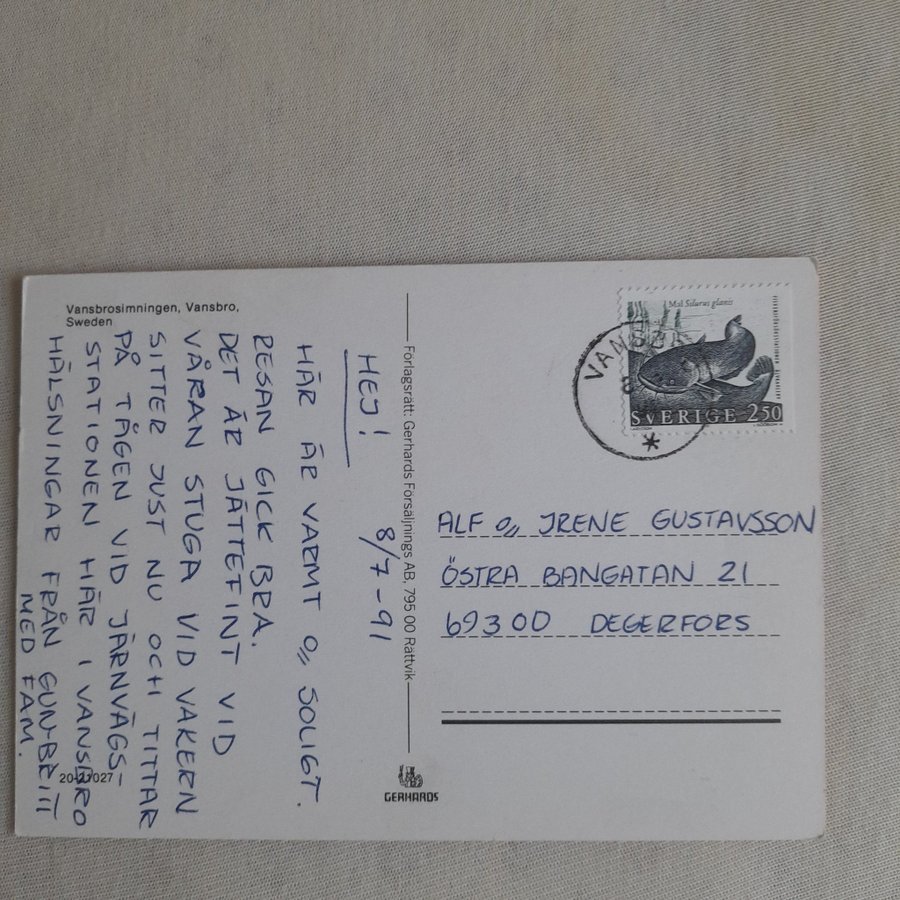 Vansbrosimningen, Vansbro,
Sweden
HEJ! 8/7-91
HÄR ÄR VARMT O// SOLIGT.
RESAN GICK BRA.
DET ÄR JÄTTEFINT VID
VÅRAN STUGA VID VAKERN
SITTER JUST NU OCH TITTAR
PÅ TÅGEN VID JÄRNVÄGS-
STATIONEN HÄR I VANSBRO
HÄLSNINGAR FRÅN GUN-BRITT
MED FAM.
20-21027
Förlagsrätt: Gerhards Försäljnings AB, 795 00 Rättvik
GERHARDS
Mal Silurus glanis
SVERIGE 250
VANSBRO
ALF O// IRENE GUSTAVSSON
ÖSTRA BANGATAN 21
69300 DEGERFORS